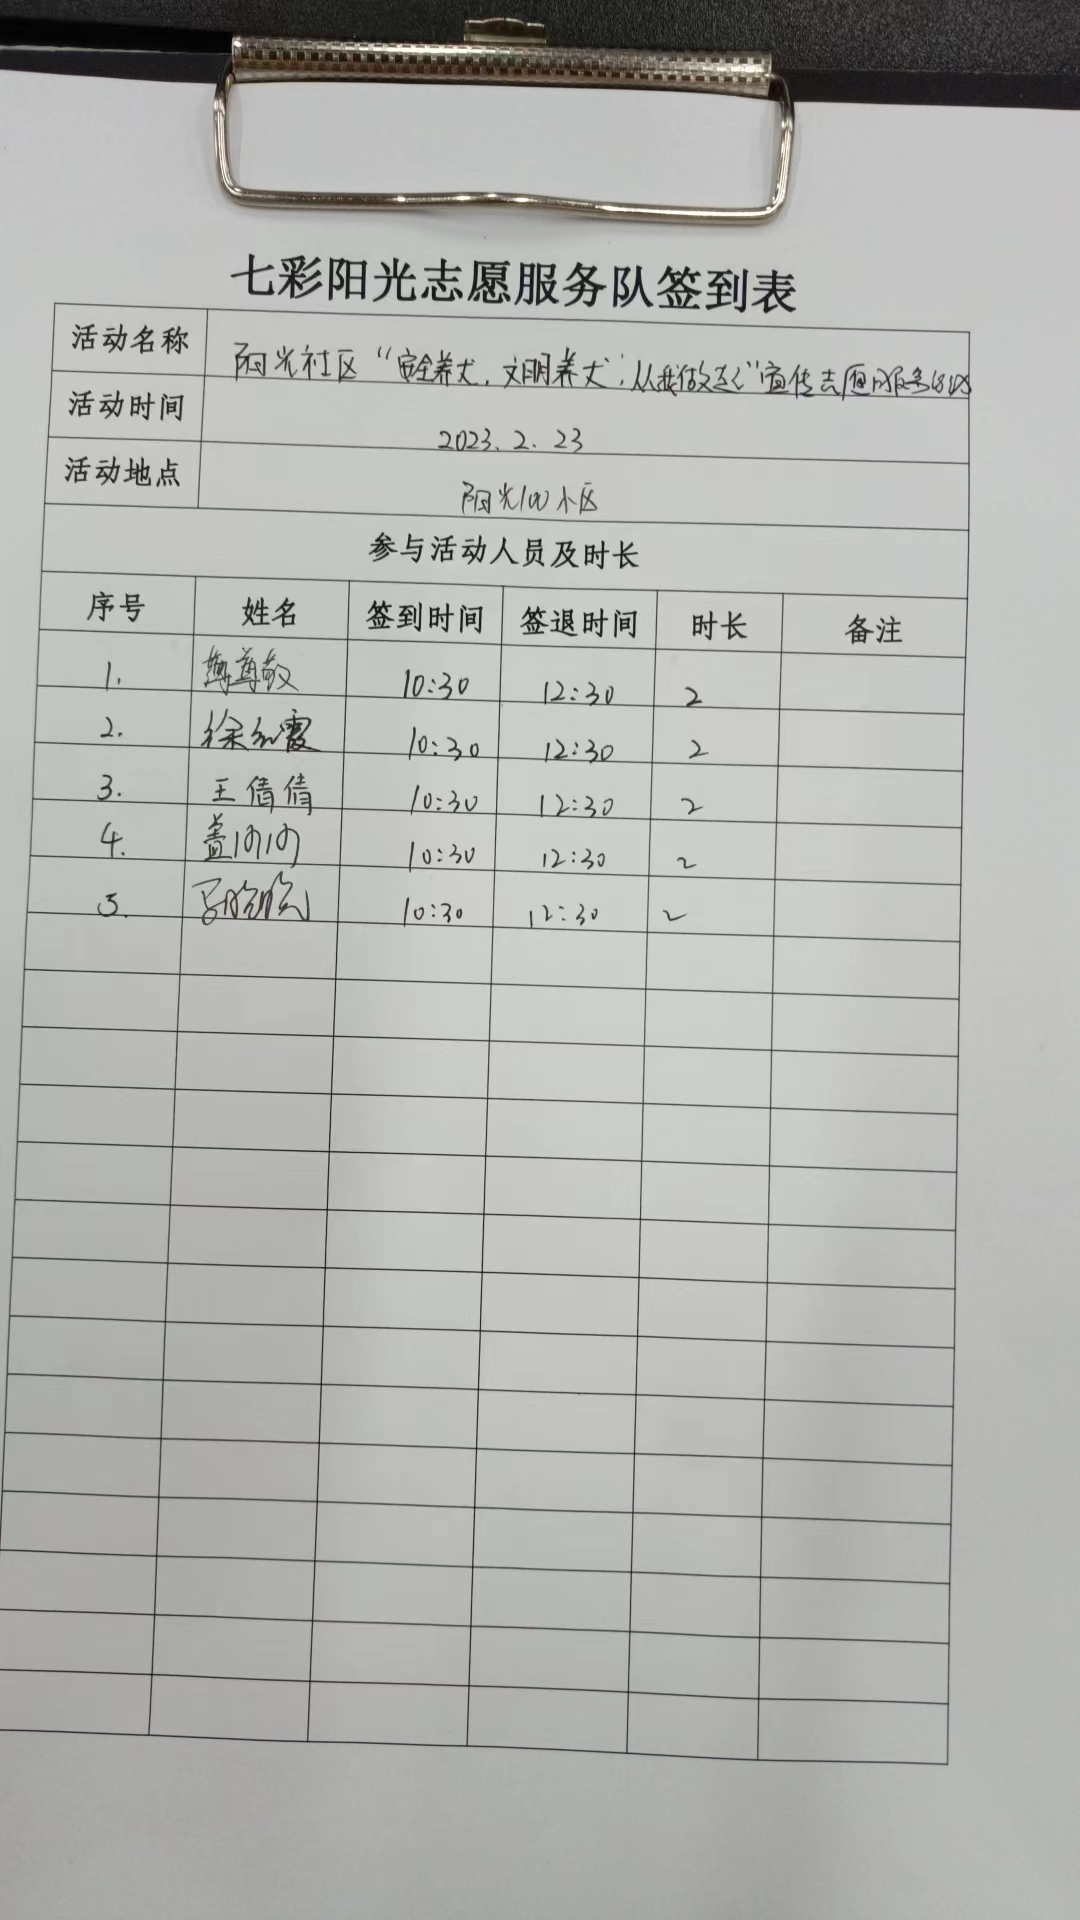 七彩阳光志愿服务队签到表
活动名称 阳光社区“安全养犬,文明养犬,从我做起”宣传志愿服务活动
活动时间 2023.2.23
活动地点 阳光100小区
参与活动人员及时长
序号 姓名 签到时间 签退时间 时长 备注
1. 尊敬 10:30 12:30 2
2. 徐红霞 10:30 12:30 2
3. 王倩倩 10:30 12:30 2
4. 盖 10:30 12:30 2
5. 晓晓 10:30 12:30 2